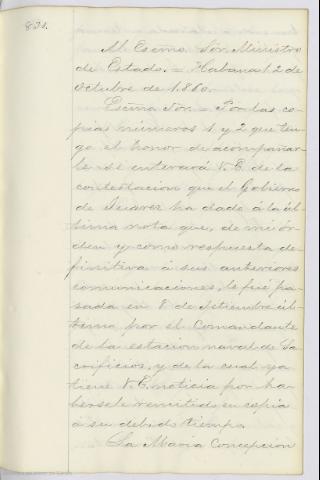 821.
Al Escmo. Sor. Ministro
de Estado. = Habana 12 de
Octubre de 1860.
Escmo Sor. = Por las co-
pias números 1 y 2 que ten-
go el honor de acompañar-
le se enterará V. E. de la
contestacion que el Gobierno
de Juarez ha dado á la úl-
tima nota que, de mi ór-
den y como respuesta de-
finitiva á sus anteriores
comunicaciones, le fué pa-
sada en 8 de Setiembre úl-
timo, por el Comandante
de la estacion naval de Sa-
crificios, y de la cual ya
tiene V. E. noticia por ha-
bersele remitido en copia
á su debido tiempo.
La Maria Concepcion